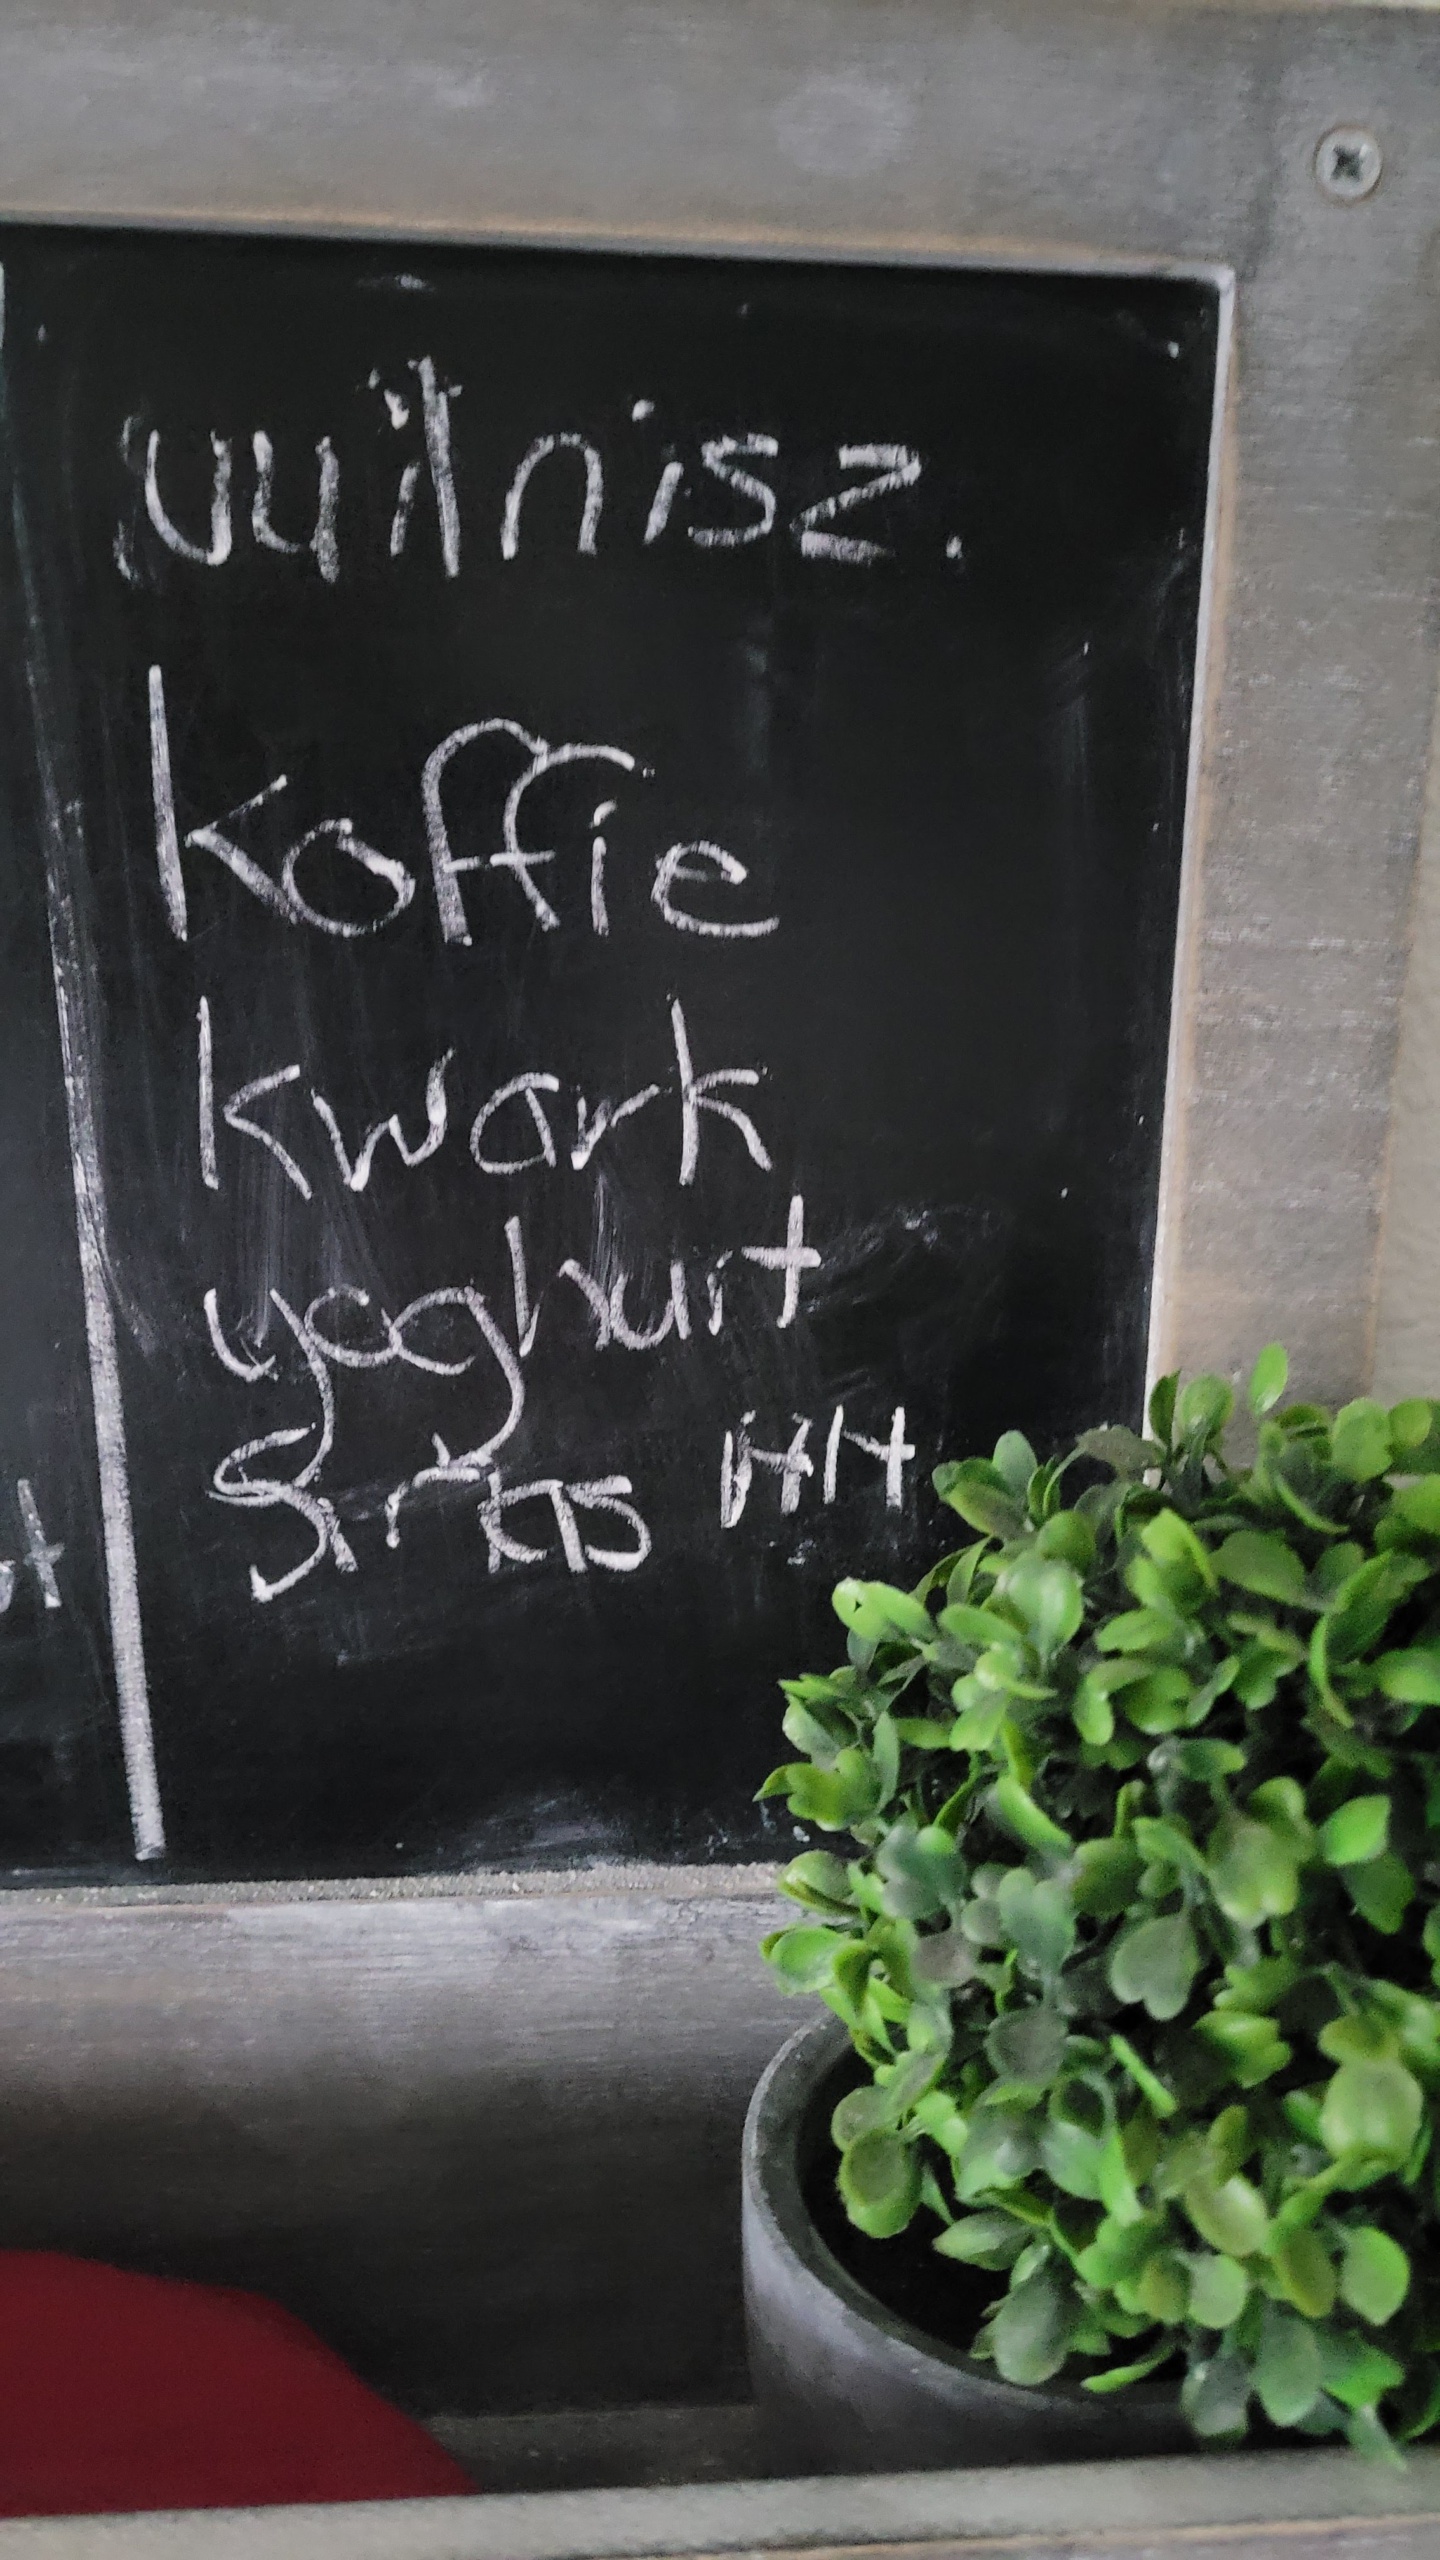 vuilnisz.
koffie
kwark
yoghurt
Sinas HH